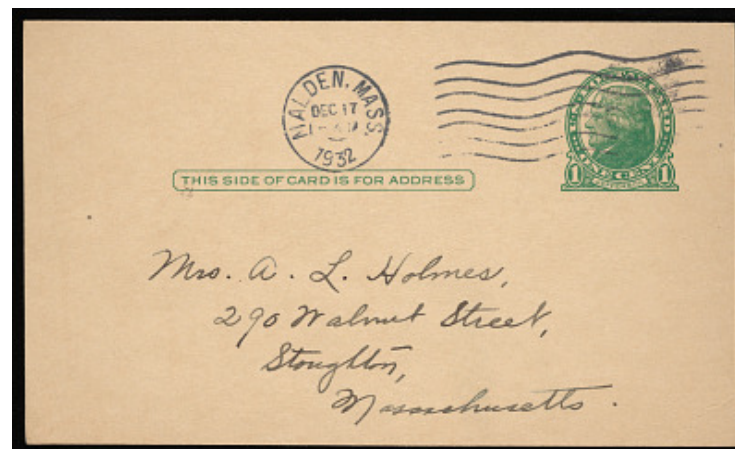 MALDEN, MASS.
DEC 17
1932
1 1
THIS SIDE OF CARD IS FOR ADDRESS
Mrs. A. L. Holmes,
290 Walnut Street,
Stoughton,
Massachusetts.